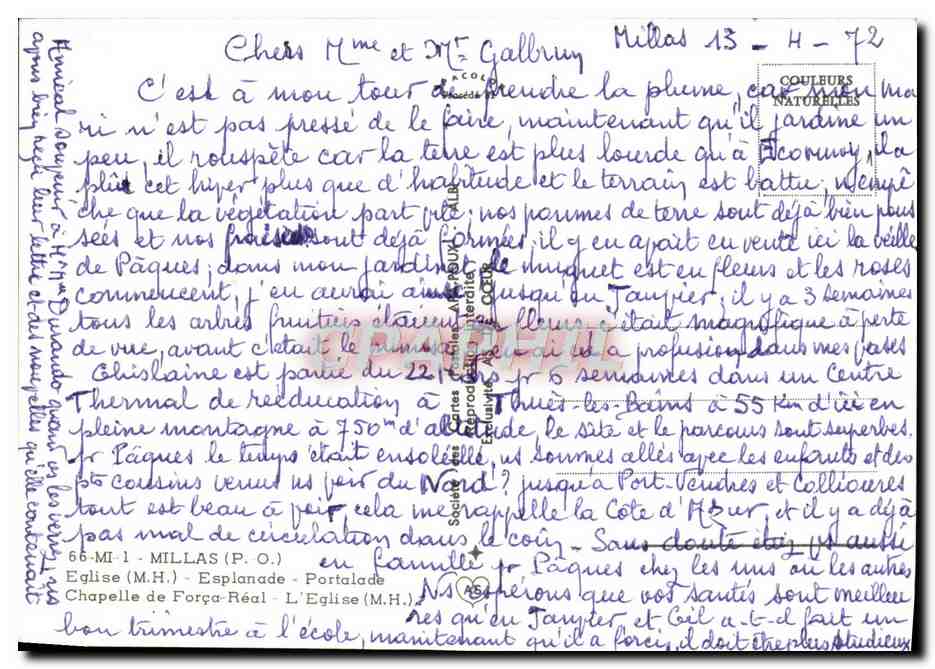 Millas 13 - 4 - 72
Chers Mme et Mr Galbrun
C'est à mon tour de prendre la plume, car mon ma
ri n'est pas pressé de le faire, maintenant qu'il jardine un
peu, il rouspète car la terre est plus lourde qu'à Ecommoy, il a
plu cet hiver plus que d'habitude et le terrain est battu, n'empê
che que la végétation part vite; nos pommes de terre sont déjà bien pous
sées et nos fraises sont déjà formées, il y en avait en vente ici la veille
de Pâques; dans mon jardinet le muguet est en fleurs et les roses
commencent, j'en aurai jusqu'en Janvier; il y a 3 semaines
tous les arbres fruitiers étaient en fleurs c'était magnifique à perte
de vue, avant c'était le mimosa, j'en ai eu à profusion dans mes vases
Ghislaine est partie du 22 pr 6 semaines dans un Centre
Thermal de rééducation à Thuès-les-Bains à 55 Km d'ici en
pleine montagne à 750m d'altitude, le site et le parcours sont superbes.
pr Pâques le temps était ensoleillé, ns sommes allés avec les enfants et des
pts cousins venus ns voir du Nord? jusqu'à Port-Vendres et Collioures
tout est beau à voir, cela me rappelle la Côte d'Azur, et il y a déjà
pas mal de circulation dans le coin - Sans doute étiez vs aussi
en famille pr Pâques chez les uns ou les autres
Ns espérons que vos santés sont meilleu
res qu'en Janvier et Gil a-t-il fait un
bon trimestre à l'école, maintenant qu'il a forci, il doit être plus studieux
Amical souvenir à Mr Mme Durando quand vs les verrez, ns
avons bien reçu leur lettre et des nouvelles qu'elle contenait
COULEURS
NATURELLES
Société des Cartes Postales APA-POUX - ALBI
Reproduction interdite
Exclusivité AS DE CŒUR
66-MI-1 - MILLAS (P. O.)
Eglise (M.H.) - Esplanade - Portalade
Chapelle de Força-Réal - L'Eglise (M.H.)
AS